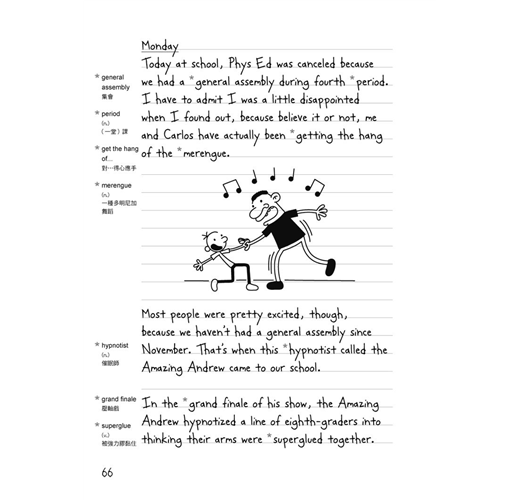 Monday
Today at school, Phys Ed was canceled because
we had a *general assembly during fourth *period.
I have to admit I was a little disappointed
when I found out, because believe it or not, me
and Carlos have actually been *getting the hang
of the *merengue.
* general
assembly
集會
* period
(n.)
(一堂)課
* get the hang
of...
對…得心應手
* merengue
(n.)
一種多明尼加
舞蹈
Most people were pretty excited, though,
because we haven't had a general assembly since
November. That's when this *hypnotist called the
Amazing Andrew came to our school.
* hypnotist
(n.)
催眠師
In the *grand finale of his show, the Amazing
Andrew hypnotized a line of eighth-graders into
thinking their arms were *superglued together.
* grand finale
壓軸戲
* superglue
(n.)
被強力膠黏住
66